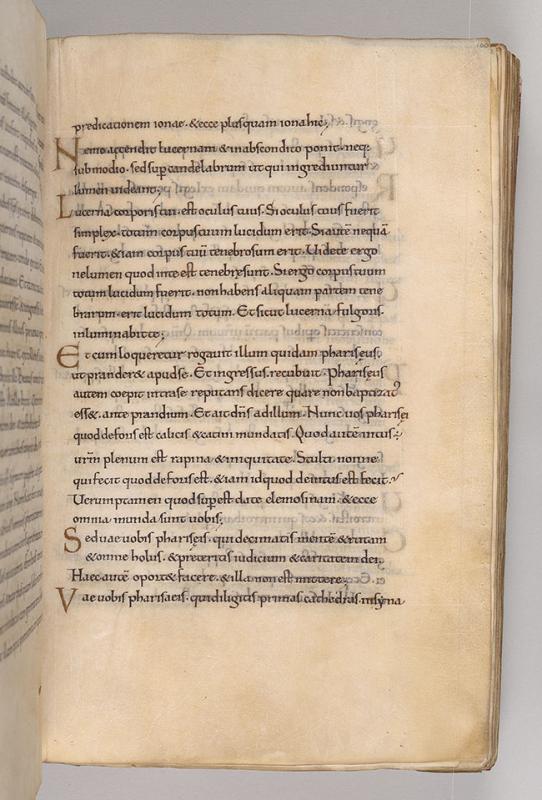 predicationem ionae. & ecce plusquam iona hic;
Nemo accendit lucernam & inabscondito ponit. neq;
submodio. sed sup candelabrum ut qui ingrediuntur
lumen uideant;
Lucerna corporis tui. est oculus tuus. Si oculus tuus fuerit
simplex. totum corpus tuum lucidum erit. Si autē nequā
fuerit. &iam corpus tuū tenebrosum erit. Uide ergo
nelumen quod inte est tenebrę sunt. Si ergo corpus tuum
totum lucidum fuerit. non habens aliquam partem tene
brarum. erit lucidum totum. Et sicut lucerna fulgoris.
inluminabit te;
Et cum loqueretur rogauit illum quidam phariseus.
ut prander& apud se. Et ingressus. recubuit. Phariseus
autem coepit intra se reputans dicere quare non baptizat'
ess&. ante prandium. Et ait dn̄s ad illum. Nunc uos pharisei
quod deforis est calicis & catini mundatis. Quod autē intus;
urm̄ plenum est rapina & iniquitate. Stulti nonne
qui fecit quod deforis est. &iam id quod deintus est fecit.
Uerumptamen quod sup est date elemosinam. & ecce
omnia munda sunt uobis;
Sed uae uobis phariseis. qui decimatis mentā & rutam
& omne holus. & preteritis iudicium & caritatem dei.
Haec autē oport& facere. & illa non omittere;
Vae uobis pharisaeis. qui diligitis primas cathedras. insyna